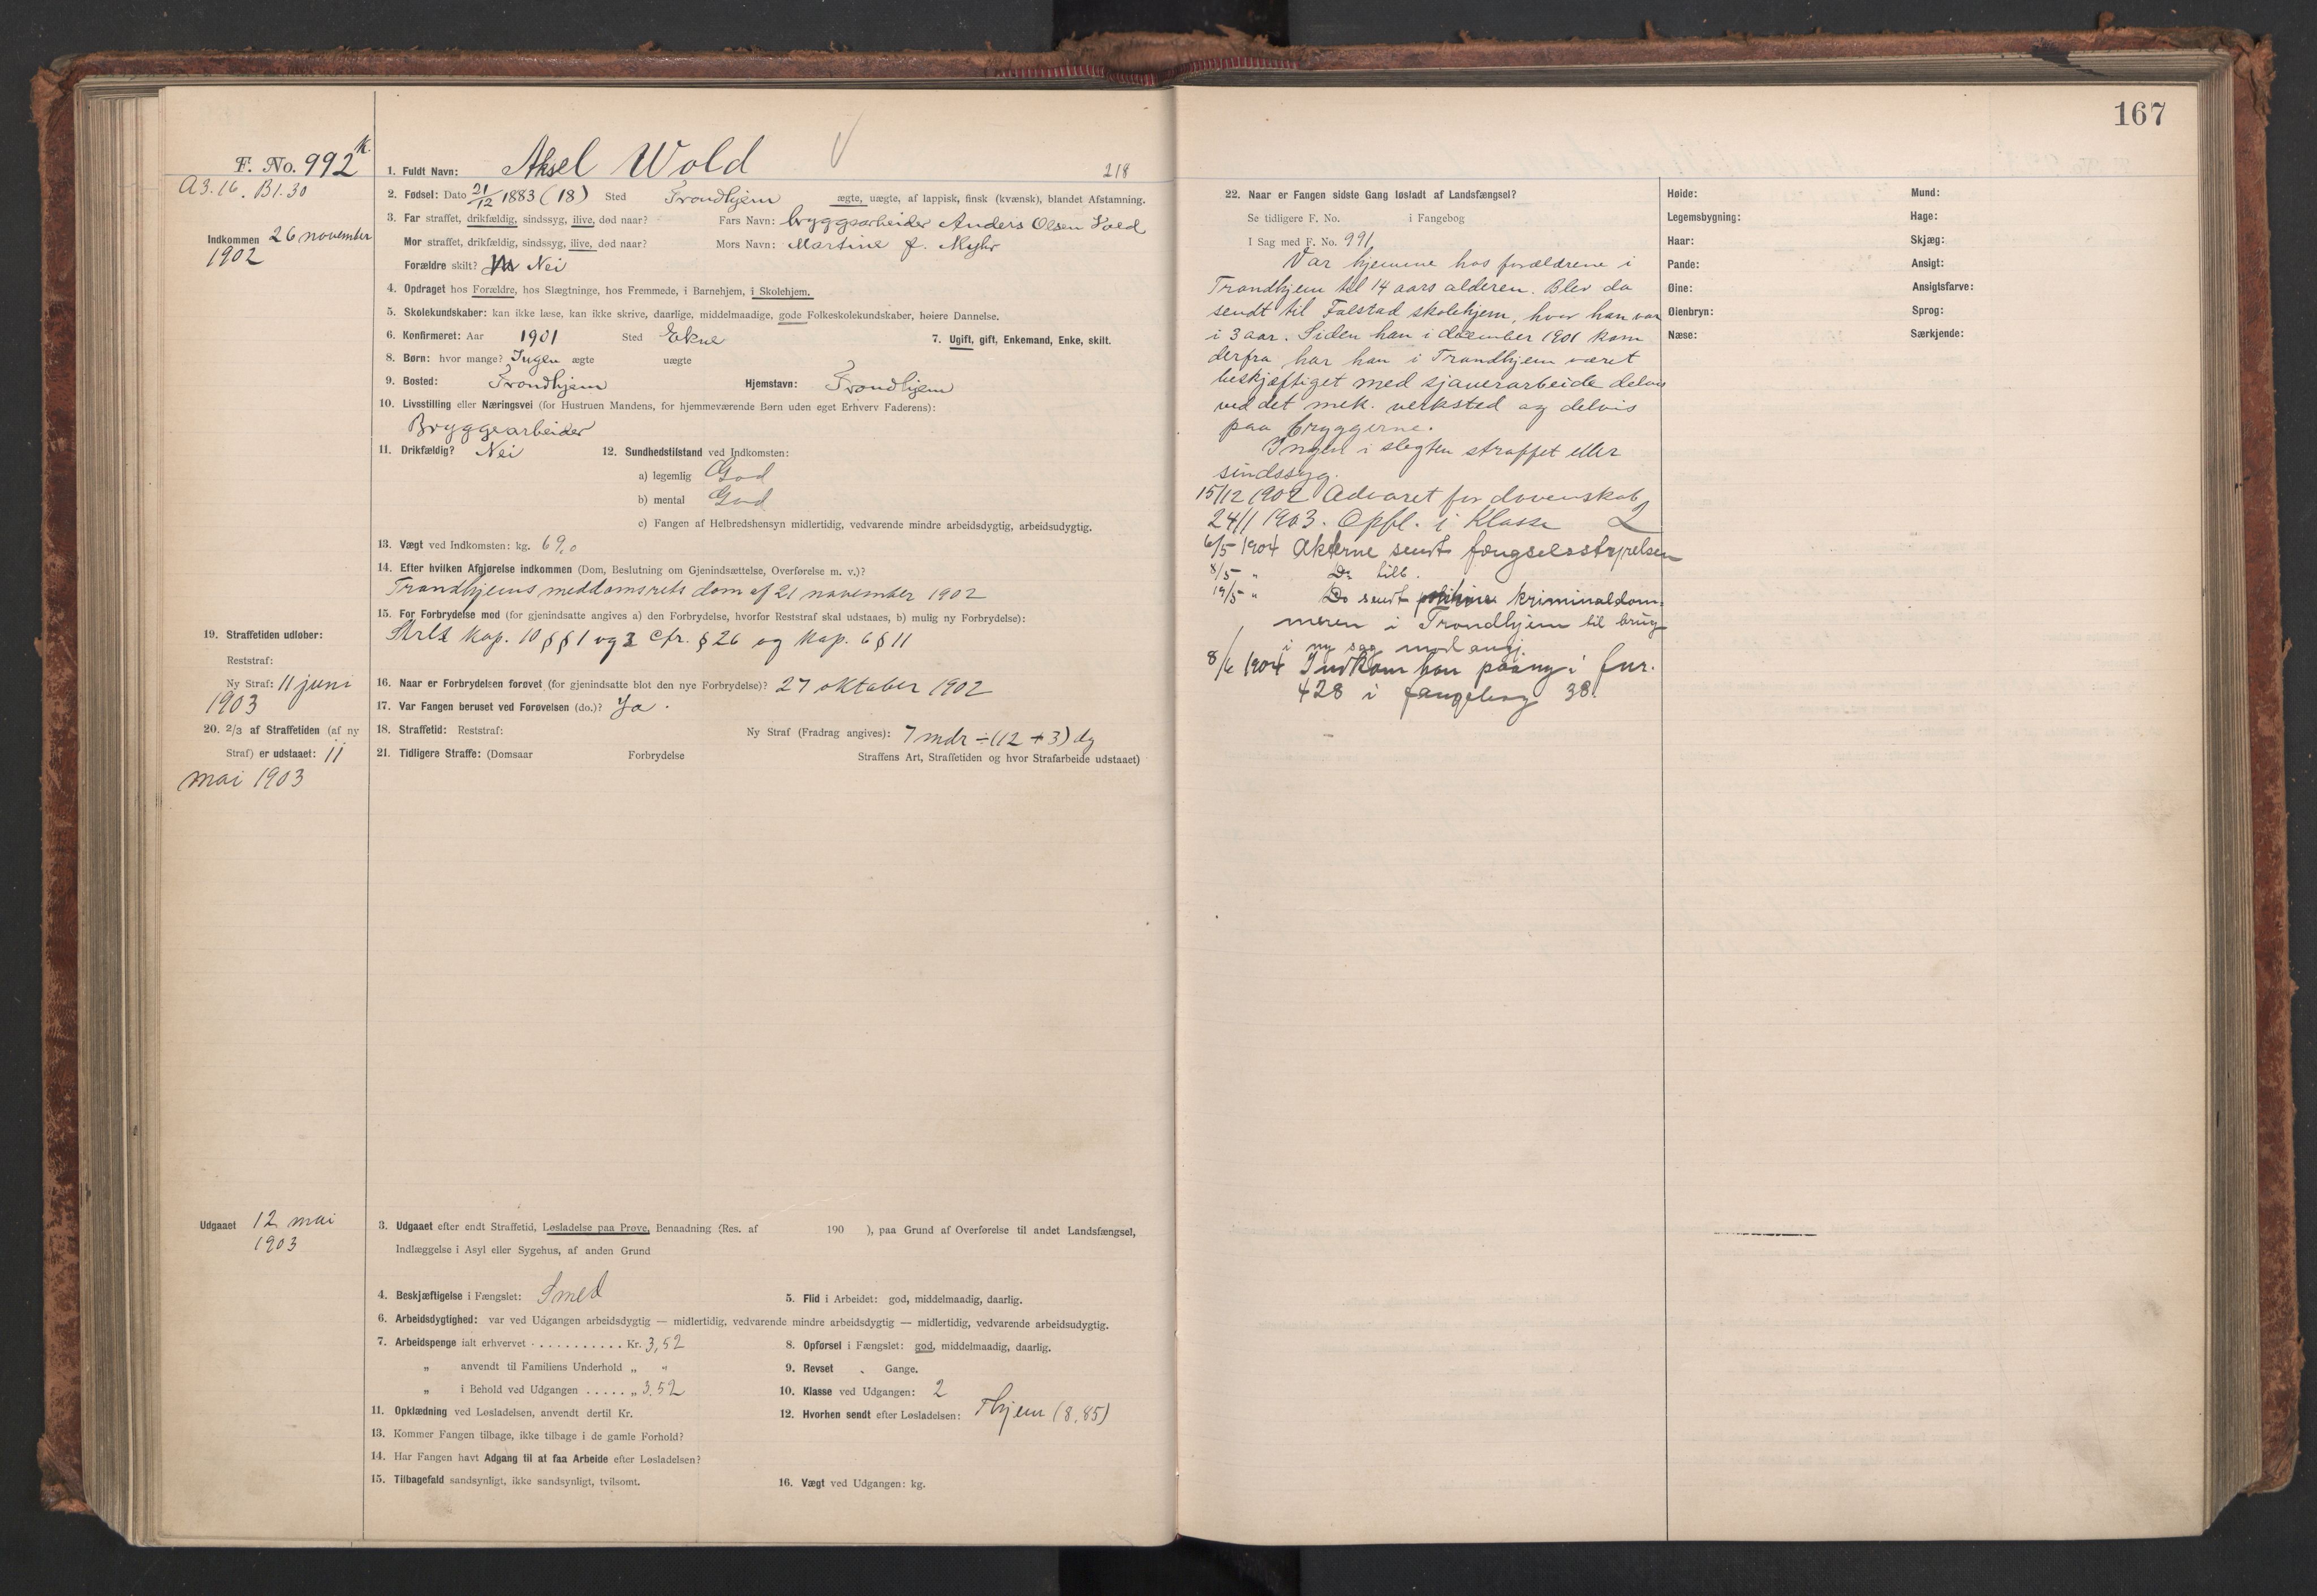 F. No. 992 K.
A 3. 16. Bl. 30
Indkommen 26 november
1902
19. Straffetiden udløber:
Reststraf:
Ny Straf: 11 juni
1903
20. 2/3 af Straffetiden (af ny
Straf) er udstaaet: 11
mai 1903
Udgaaet 12 mai
1903
1. Fuldt Navn: Aksel Wold 218
2. Fødsel: Dato 21/12 1883 (18) Sted Trondhjem ægte, uægte, af lappisk, finsk (kvænsk), blandet Afstamning.
3. Far straffet, drikfældig, sindssyg, ilive, død naar? Fars Navn: bryggearbeider Anders Olsen Vold
Mor straffet, drikfældig, sindssyg, ilive, død naar? Mors Navn: Martine f. Myhr
Forældre skilt? Nei
4. Opdraget hos Forældre, hos Slægtninge, hos Fremmede, i Barnehjem, i Skolehjem.
5. Skolekundskaber: kan ikke læse, kan ikke skrive, daarlige, middelmaadige, gode Folkeskolekundskaber, høiere Dannelse.
6. Konfirmeret: Aar 1901 Sted Ekne 7. Ugift, gift, Enkemand, Enke, skilt.
8. Børn: hvor mange? Ingen ægte uægte
9. Bosted: Trondhjem Hjemstavn: Trondhjem
10. Livsstilling eller Næringsvei (for Hustruen Mandens, for hjemmeværende Børn uden eget Erhverv Faderens):
Bryggearbeider
11. Drikfældig? Nei 12. Sundhedstilstand ved Indkomsten:
a) legemlig God
b) mental God
c) Fangen af Helbredshensyn midlertidig, vedvarende mindre arbeidsdygtig, arbeidsudygtig.
13. Vægt ved Indkomsten: kg. 69,0
14. Efter hvilken Afgjørelse indkommen (Dom, Beslutning om Gjenindsættelse, Overførelse m. v.)?
Trondhjems meddomsrets dom af 21 november 1902
15. For Forbrydelse mod (for gjenindsatte angives a) den Forbrydelse, hvorfor Reststraf skal udstaaes, b) mulig ny Forbrydelse):
Strl kap. 10 §§ 1 og 3 cfr. § 26 og kap. 6 § 11
16. Naar er Forbrydelsen forøvet (for gjenindsatte blot den nye Forbrydelse)? 27 oktober 1902
17. Var Fangen beruset ved Forøvelsen (do.)? Ja.
18. Straffetid: Reststraf: Ny Straf (Fradrag angives): 7 mdr ÷ (12 + 3) dg
21. Tidligere Straffe: (Domsaar Forbrydelse Straffens Art, Straffetiden og hvor Strafarbeide udstaaet)
3. Udgaaet efter endt Straffetid, Løsladelse paa Prøve, Benaadning (Res. af 190 ), paa Grund af Overførelse til andet Landsfængsel,
Indlæggelse i Asyl eller Sygehus, af anden Grund
4. Beskjæftigelse i Fængslet: Smed 5. Flid i Arbeidet: god, middelmaadig, daarlig.
6. Arbeidsdygtighed: var ved Udgangen arbeidsdygtig — midlertidig, vedvarende mindre arbeidsdygtig — midlertidig, vedvarende arbeidsudygtig.
7. Arbeidspenge ialt erhvervet . . . . . . . . . . Kr. 3,52 8. Opførsel i Fængslet: god, middelmaadig, daarlig.
„ anvendt til Familiens Underhold „ „ 9. Revset . Gange.
„ i Behold ved Udgangen . . . . . „ 3.52 10. Klasse ved Udgangen: 2
11. Opklædning ved Løsladelsen, anvendt dertil Kr. 12. Hvorhen sendt efter Løsladelsen: Thjem (8,85)
13. Kommer Fangen tilbage, ikke tilbage i de gamle Forhold?
14. Har Fangen havt Adgang til at faa Arbeide efter Løsladelsen?
15. Tilbagefald sandsynligt, ikke sandsynligt, tvilsomt. 16. Vægt ved Udgangen: kg.
167
22. Naar er Fangen sidste Gang løsladt af Landsfængsel?
Se tidligere F. No. i Fangebog
I Sag med F. No. 991
Var hjemme hos forældrene i
Trondhjem til 14 aars alderen. Blev da
sendt til Falstad skolehjem, hvor han var
i 3 aar. Siden han i december 1901 kom
derfra har han i Trondhjem været
beskjæftiget med sjauerarbeide delvis
ved det mek. verksted og delvis
paa bryggerne.
Ingen i slegten straffet eller
sindssyg.
15/12 1902 Advaret for dovenskab
24/1 1903. Opfl. i Klasse 2
6/5 1904 Akterne sendt fængselsstyrelsen
8/5 " Do tilb.
19/5 " Do sendt kriminaldom-
meren i Trondhjem til brug
i ny sag mod angj.
8/6 1904 Indkom han paany i fnr.
428 i fangebog 38.
Høide:
Legemsbygning:
Haar:
Pande:
Øine:
Øienbryn:
Næse:
Mund:
Hage:
Skjæg:
Ansigt:
Ansigtsfarve:
Sprog:
Særkjende: